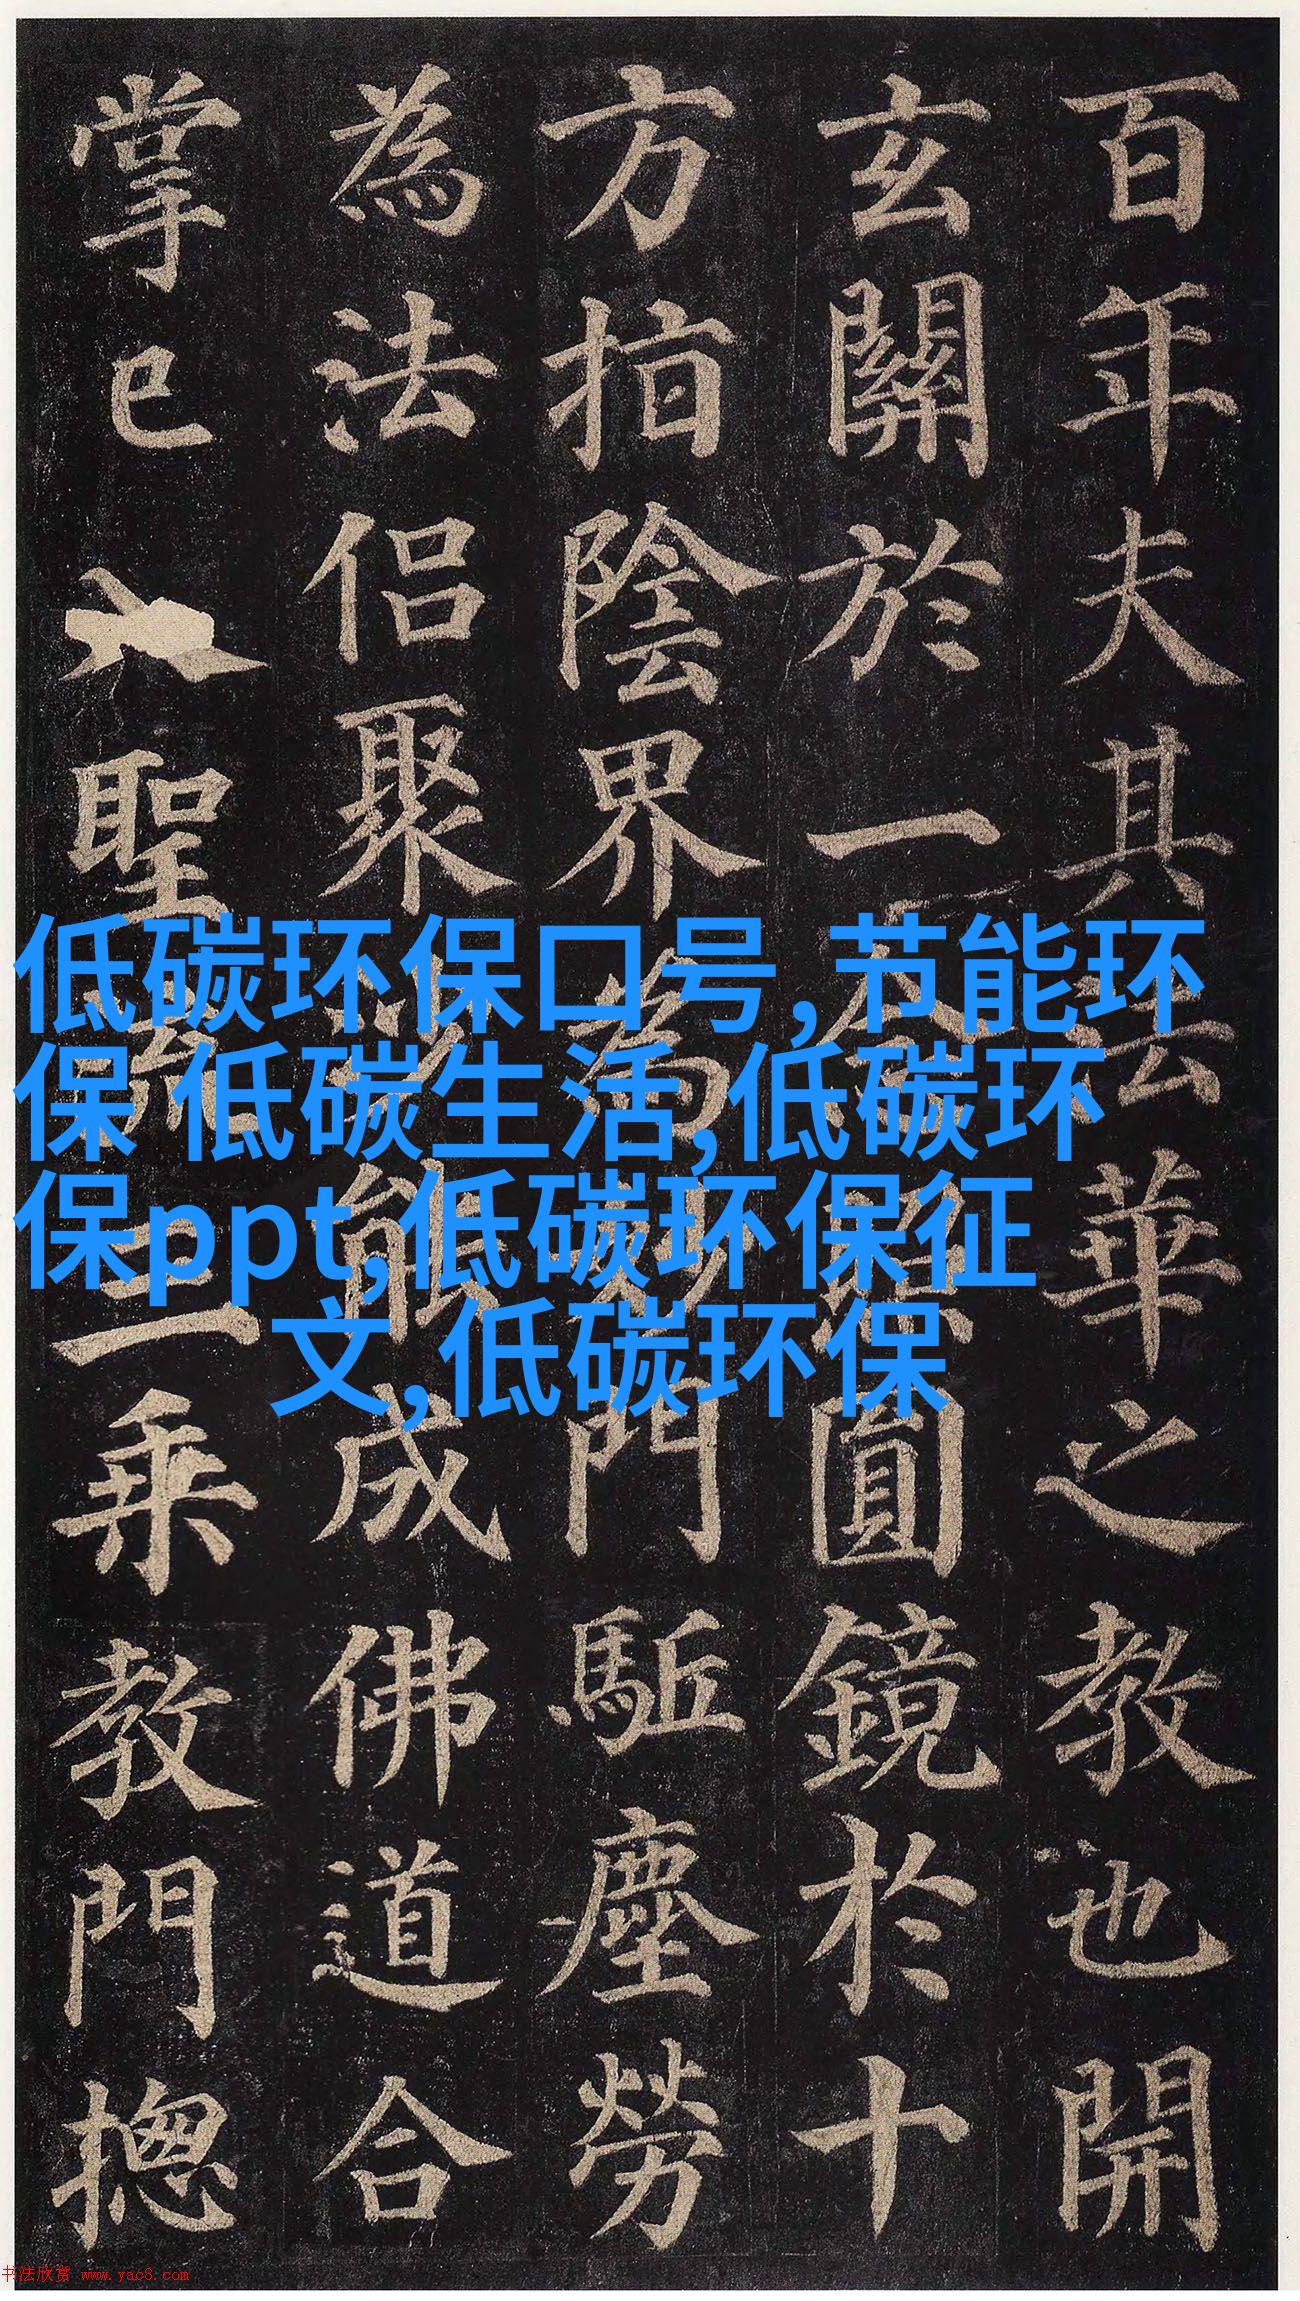 百年夫其法華之教也開
玄關於一念照圓鏡於十
方指陰界為妙門駈塵勞
為法侶聚沙能成佛道合
掌已入聖流三乘教門揔
低碳环保口号,节能环
保 低碳生活,低碳环
保ppt,低碳环保征
文,低碳环保
书法欣赏 www.yac8.com